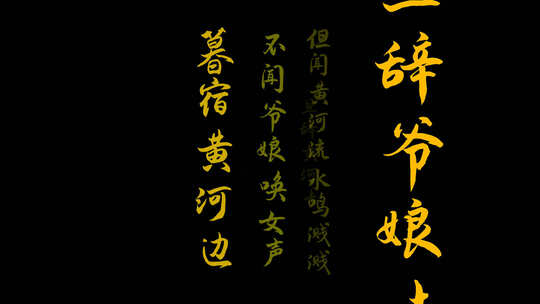 辞爷娘
但闻黄河流水鸣溅溅
不闻爷娘唤女声
暮宿黄河边